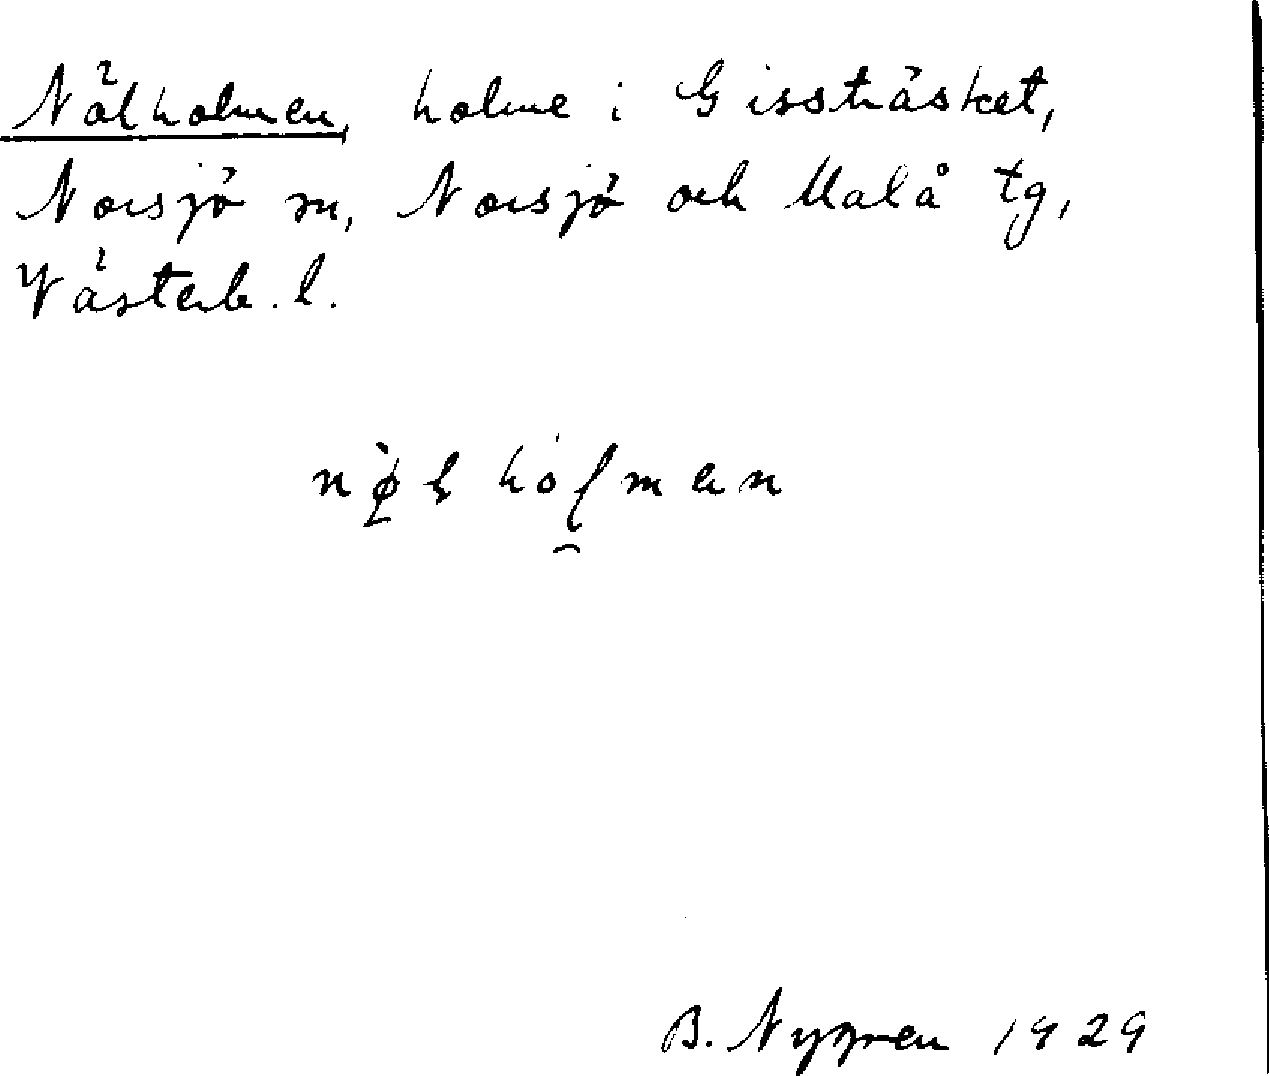 Nälholmen, holme i Gissträsket,
Norsjö sn, Norsjö och Malå tg,
Västerb. l.
B. Nygren 1929